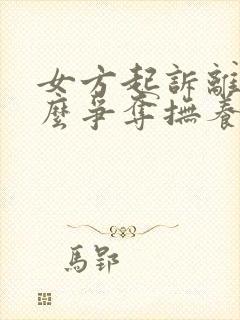 女方起訴離
麼爭奪撫養
馬郢